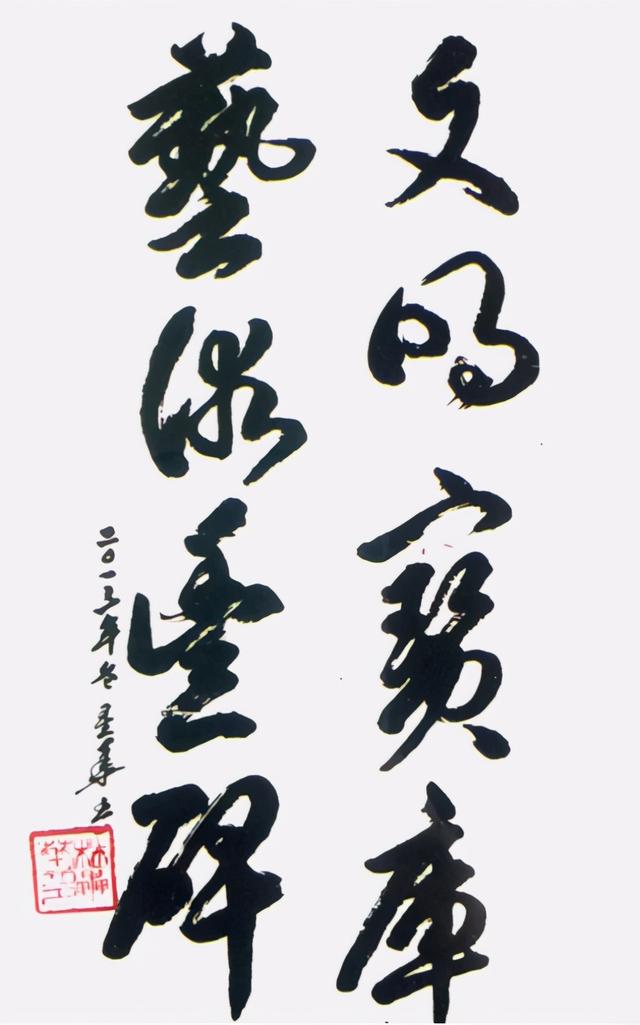 文明寶庫
藝術豐碑
二〇一三年冬